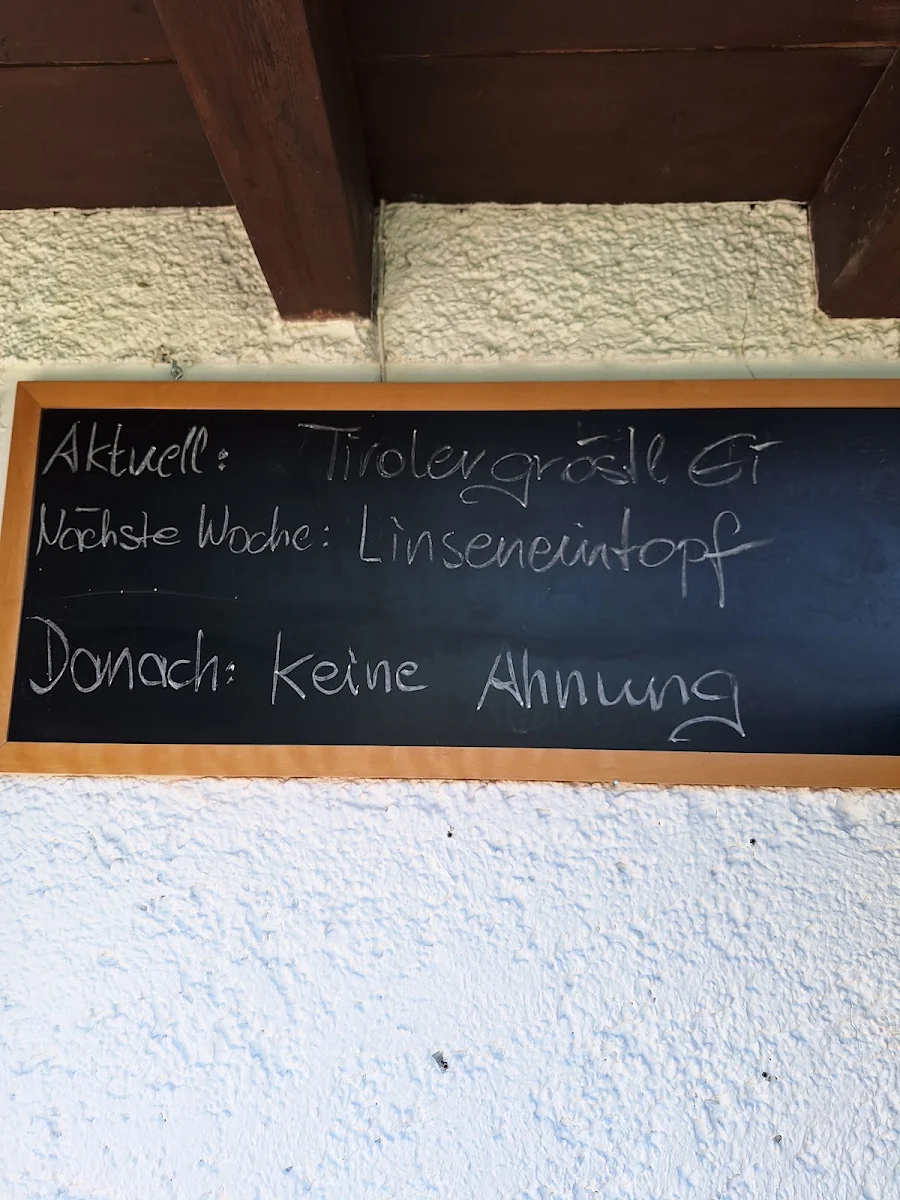 Aktuell: Tirolergröstl Ei
Nächste Woche: Linseneintopf
Danach: Keine Ahnung